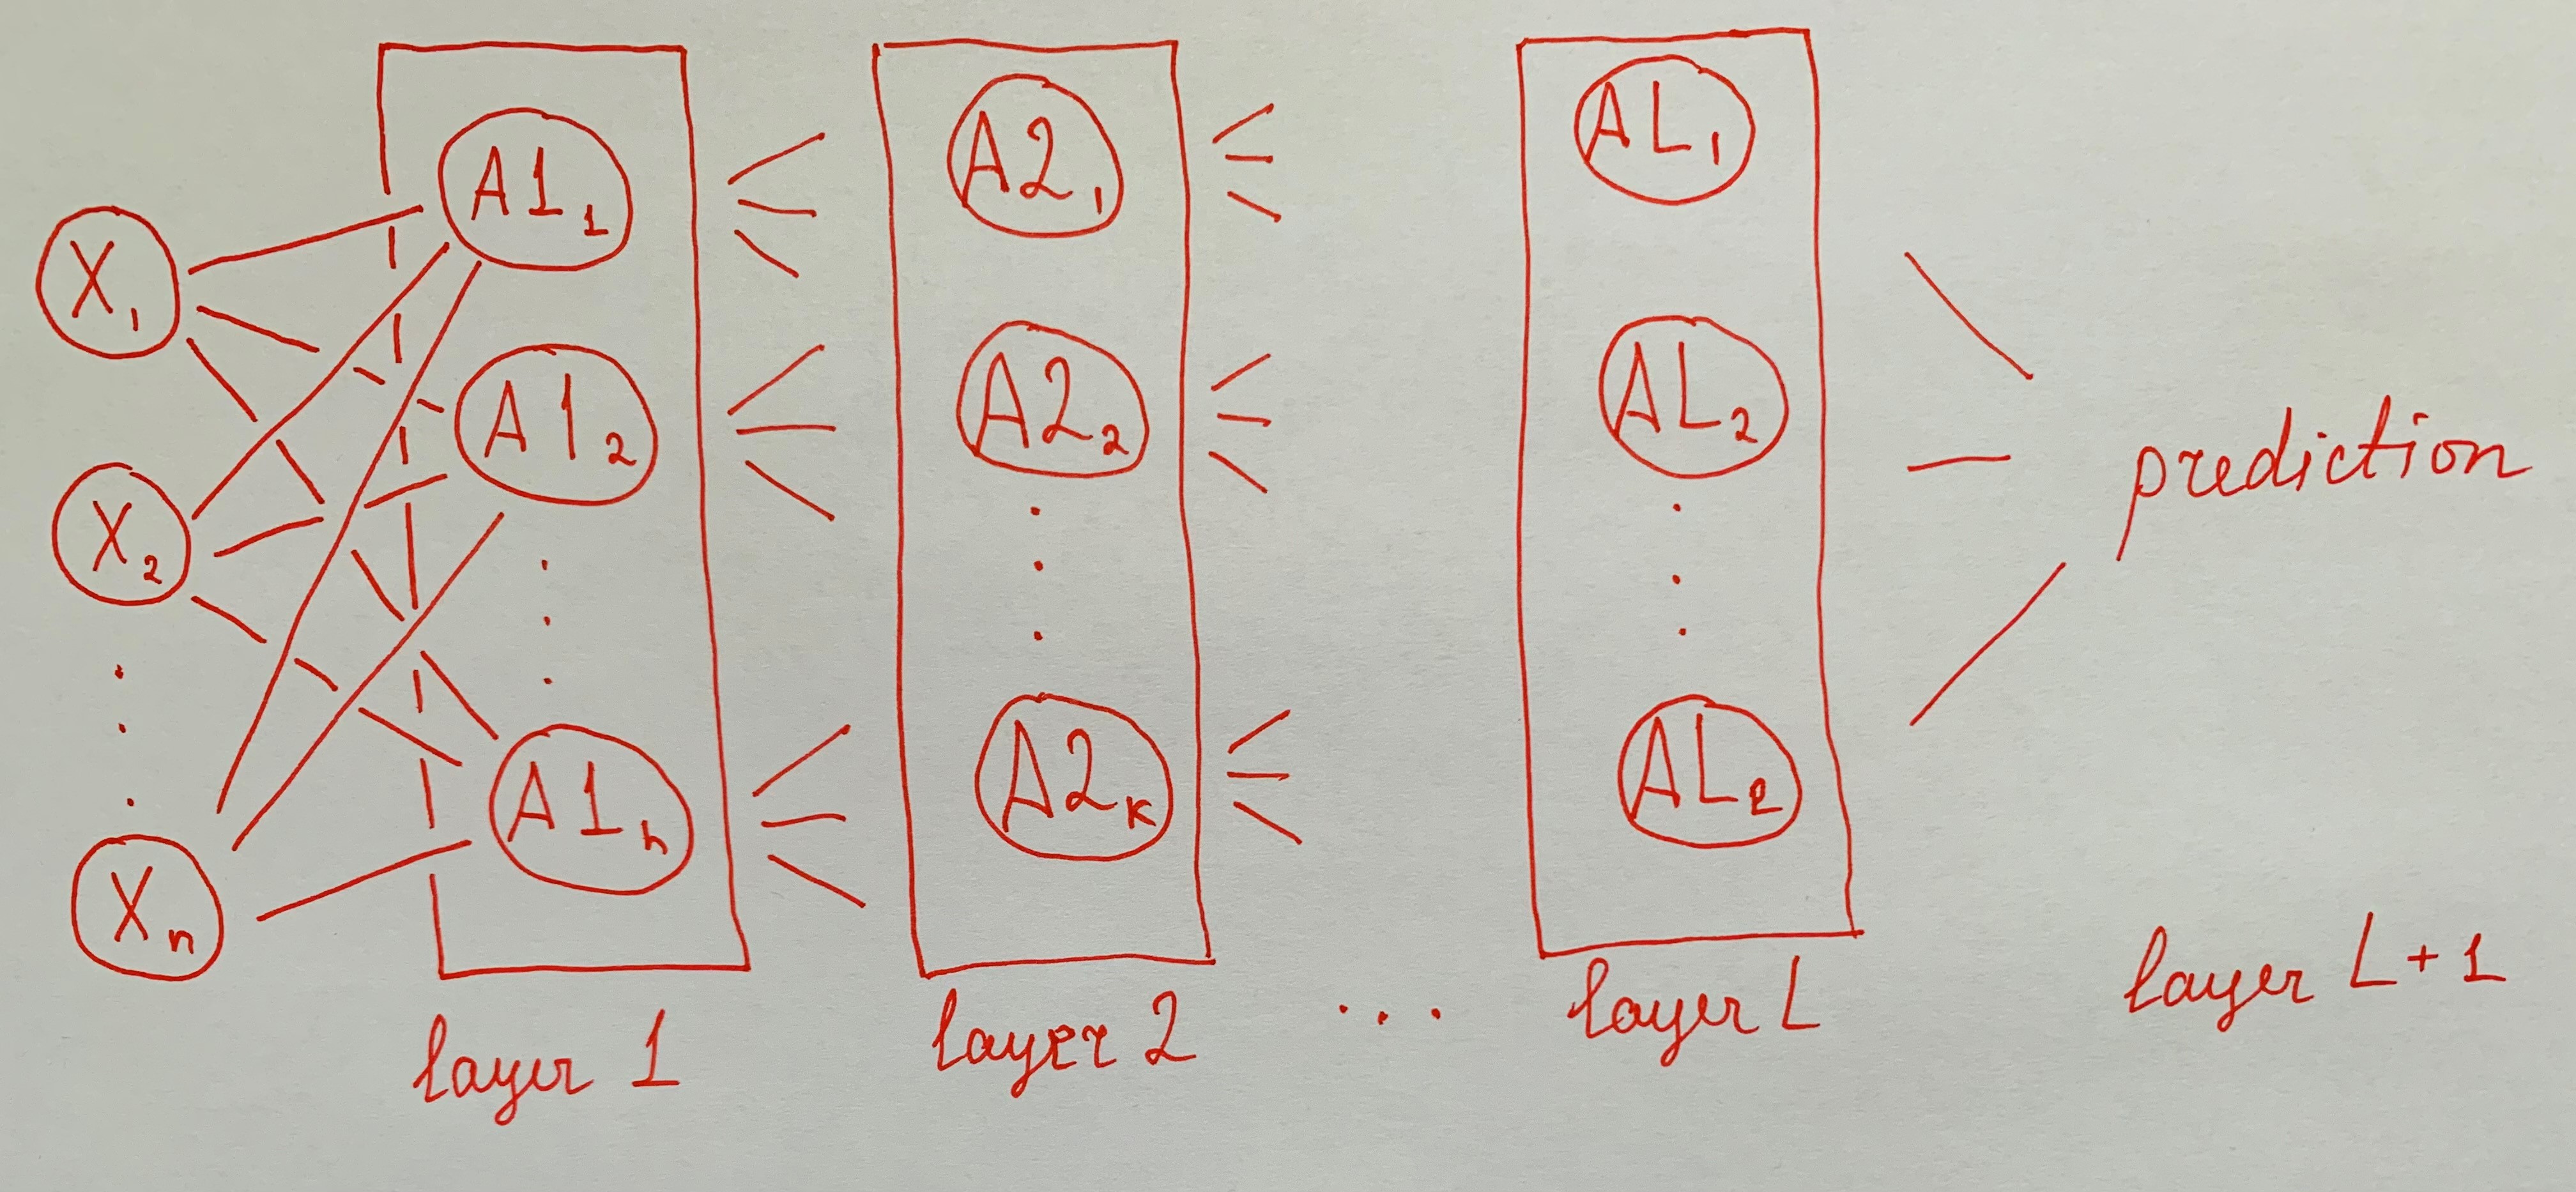 X1
X2
Xn
A11
A12
A1h
layer 1
A21
A22
A2K
layer 2
...
AL1
AL2
ALe
layer L
prediction
layer L+1